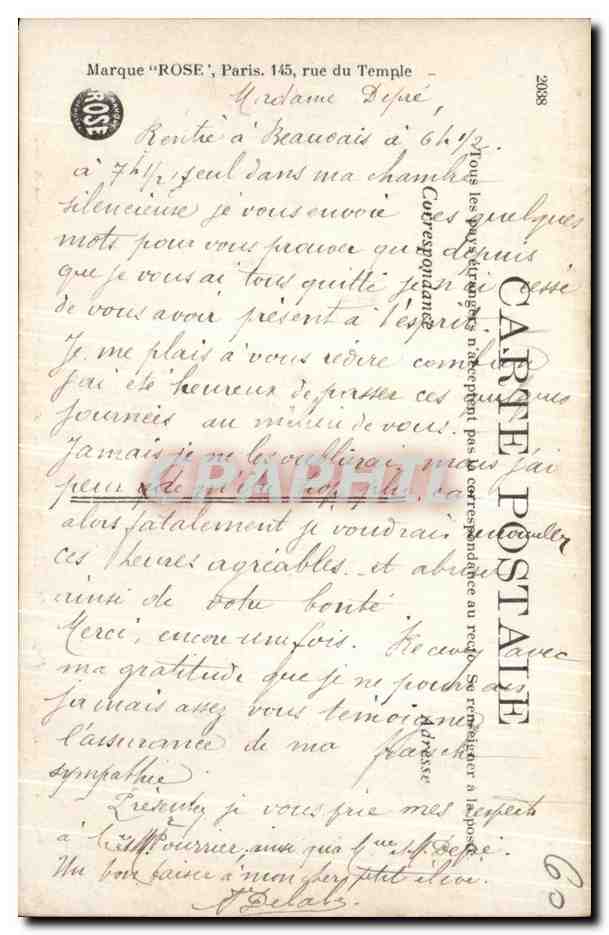 Marque "ROSE", Paris. 145, rue du Temple
2038
ROSE
Madame Depré,
Rentré à Beauvais à 6h 1/2.
à 7h 1/2, seul dans ma chambre
silencieuse je vous envoie ces quelques
mots pour vous prouver que depuis
que je vous ai tous quitté je n'ai cessé
de vous avoir présent à l'esprit.
Je me plais à vous redire combien
j'ai été heureux de passer ces quelques
journées au milieu de vous.
Jamais je ne les oublierai, mais j'ai
peur de m'être trop plu, car
alors fatalement je voudrais renouveler
ces heures agréables et abuser
ainsi de votre bonté.
Merci, encore une fois. Recevez avec
ma gratitude que je ne pourrai
jamais assez vous témoigner
l'assurance de ma franche
sympathie.
Présentez je vous prie mes respects
à Pourrier ainsi qu'à Depré.
Un bon baiser à mon cher petit élève.
CARTE POSTALE
Tous les pays étrangers n'acceptent pas la correspondance au recto. Se renseigner à la poste
Correspondance
Adresse
CPAPHIL